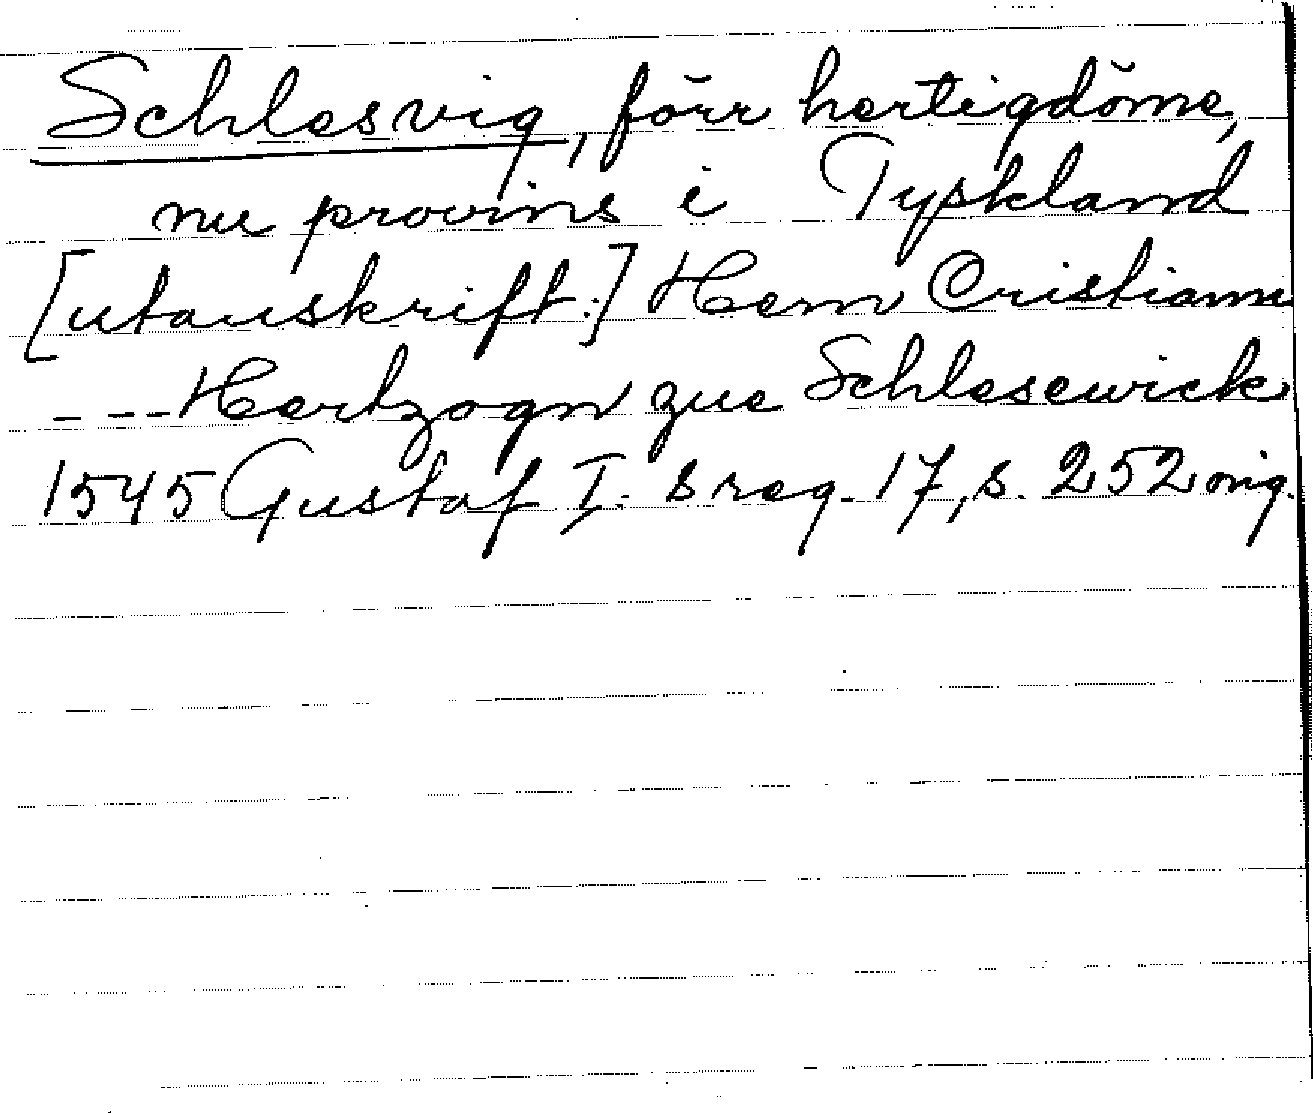 Schlesvig, förr hertigdöme,
nu provins i Tyskland
[utanskrift:] Hern Cristiann
--- Hertzogn zue Schlesewick
1545 Gustaf I:s reg. 17, s. 252 orig.